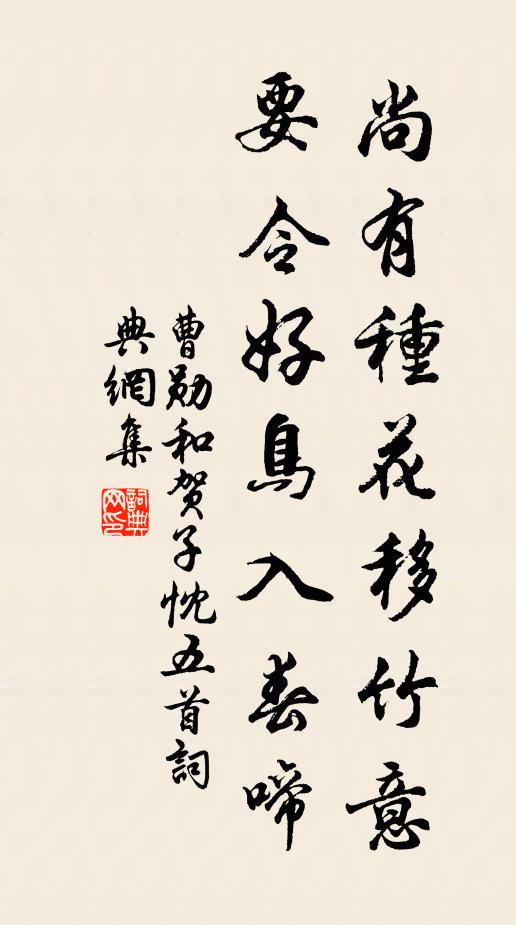 尚有種花移竹意
要令好鳥入春啼
曹勛和賀子忱五首詞
典網集
詞典
网印